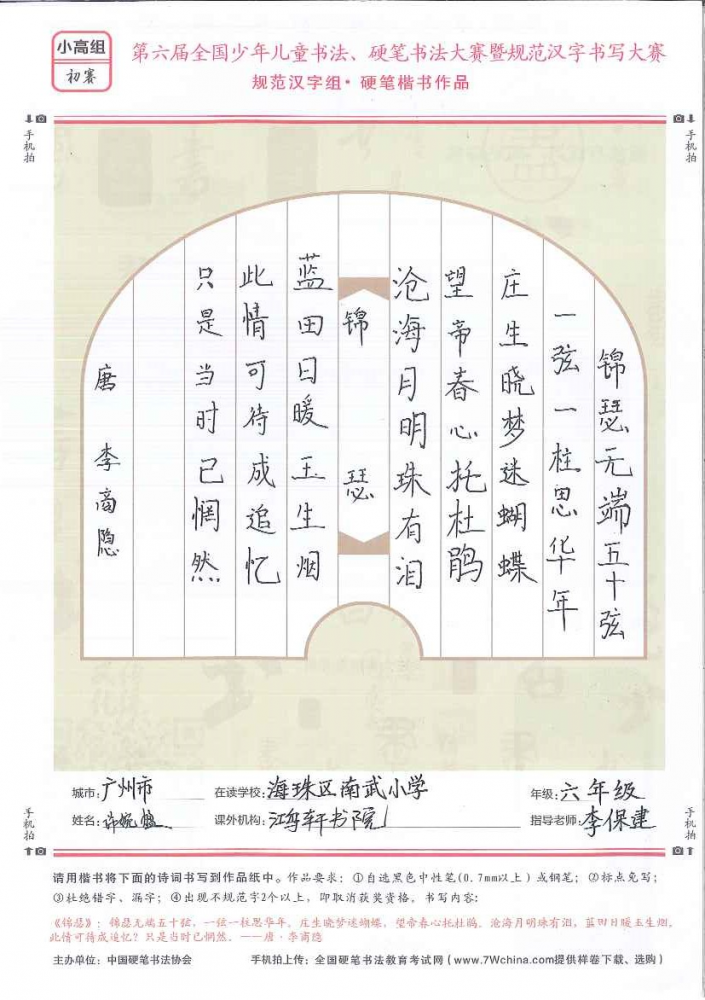 小高组
初赛
第六届全国少年儿童书法、硬笔书法大赛暨规范汉字书写大赛
规范汉字组·硬笔楷书作品
手机拍
手机拍
锦瑟无端五十弦
一弦一柱思华年
庄生晓梦迷蝴蝶
望帝春心托杜鹃
沧海月明珠有泪
锦瑟
蓝田日暖玉生烟
此情可待成追忆
只是当时已惘然
唐 李商隐
城市:广州市 在读学校:海珠区南武小学 年级:六年级
姓名:许 课外机构:轩书院 指导老师:李保建
手机拍
手机拍
请用楷书将下面的诗词书写到作品纸中。作品要求:①自选黑色中性笔(0.7mm以上)或钢笔;②标点免写;
③杜绝错字、漏字;④出现不规范字2个以上,即取消获奖资格。书写内容:
《锦瑟》:锦瑟无端五十弦,一弦一柱思华年。庄生晓梦迷蝴蝶,望帝春心托杜鹃。沧海月明珠有泪,蓝田日暖玉生烟。
此情可待成追忆?只是当时已惘然。——唐·李商隐
主办单位:中国硬笔书法协会 手机拍上传:全国硬笔书法教育考试网(www.7Wchina.com提供样卷下载、选购)